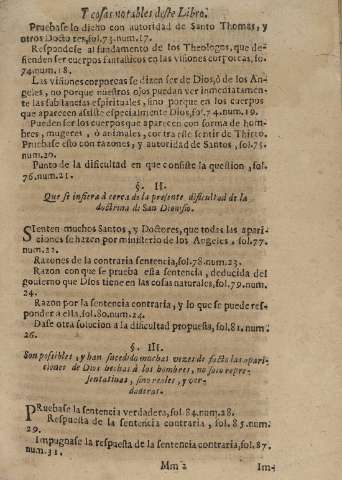 Y cosas notables deste Libro.
Pruebase lo dicho con autoridad de Santo Thomas, y
otros Doctores, fol. 73. num. 17.
Respondese al fundamento de los Theologos, que de-
fienden ser cuerpos fantasticos en las visiones corporeas, fo.
74. num. 18.
Las visiones corporeas se dizen ser de Dios, ò de los An-
geles, no porque nuestros ojos puedan ver inmediatamen-
te las substancias espirituales, sino porque en los cuerpos
que aparecen assiste especialmente Dios, fol. 74. num. 19.
Pueden ser los cuerpos que aparecen con forma de hom-
bres, mugeres, ò animales, contra este sentir de Thireo.
Pruebase esto con razones, y autoridad de Santos, fol. 75.
num. 20.
Punto de la dificultad en que consiste la question, fol.
76. num. 21.
§. II.
Que se infiera à cerca de la presente dificultad de la
doctrina de San Dionisio.
SIenten muchos Santos, y Doctores, que todas las apari-
ciones se hazen por ministerio de los Angeles, fol. 77.
num. 22.
Razones de la contraria sentencia, fol. 78. num. 23.
Razon con que se prueba esta sentencia, deducida del
gouierno que Dios tiene en las cosas naturales, fol. 79. num.
24.
Razon por la sentencia contraria, y lo que se puede res-
ponder a ella, fol. 80. num. 24.
Dase otra solucion a la dificultad propuesta, fol. 81. num.
26.
§. III.
Son possibles, y han sucedido muchas vezes de facto las apari-
ciones de Dios hechas à los hombres, no solo repre-
sentativas, sino reales, y ver-
daderas.
PRuebase la sentencia verdadera, fol. 84. num. 28.
Respuesta de la sentencia contraria, fol. 85. num.
29.
Impugnase la respuesta de la sentencia contraria, fol. 87.
num. 31.
Mm 2 Im-